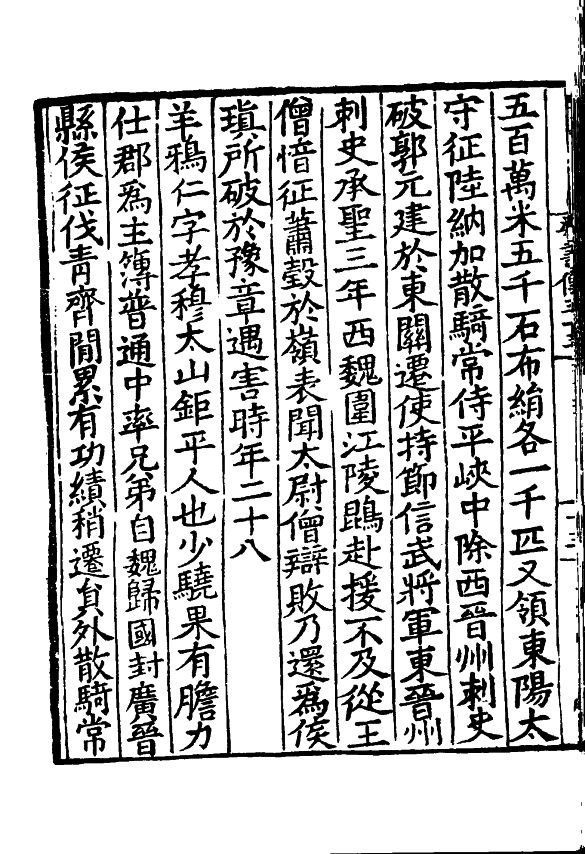 五百萬米五千石布絹各一千匹又領東陽太
守征陸納加散騎常侍平峽中除西晉州刺史
破郭元建於東關遷使持節信武將軍東晉州
刺史承聖三年西魏圍江陵鵾赴援不及從王
僧愔征蕭㪍於嶺表聞太尉僧辯敗乃還爲侯
瑱所破於豫章遇害時年二十八
羊鴉仁字孝穆太山鉅平人也少驍果有膽力
仕郡爲主簿普通中率兄弟自魏歸國封廣晉
縣侯征伐青齊閒累有功績稍遷貟外散騎常